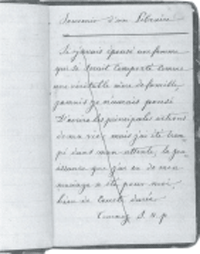 Souvenir d'un Libraire
Si j'avais épousé une femme
qui se serait comportée comme
une véritable mère de famille,
jamais je n'aurais pensé
D'écrire les principales actions
de ma vie mais j'ai été trom-
pé dans mon attente, la jou-
issance que j'ai eu de mon
mariage a été pour moi
bien de courte durée